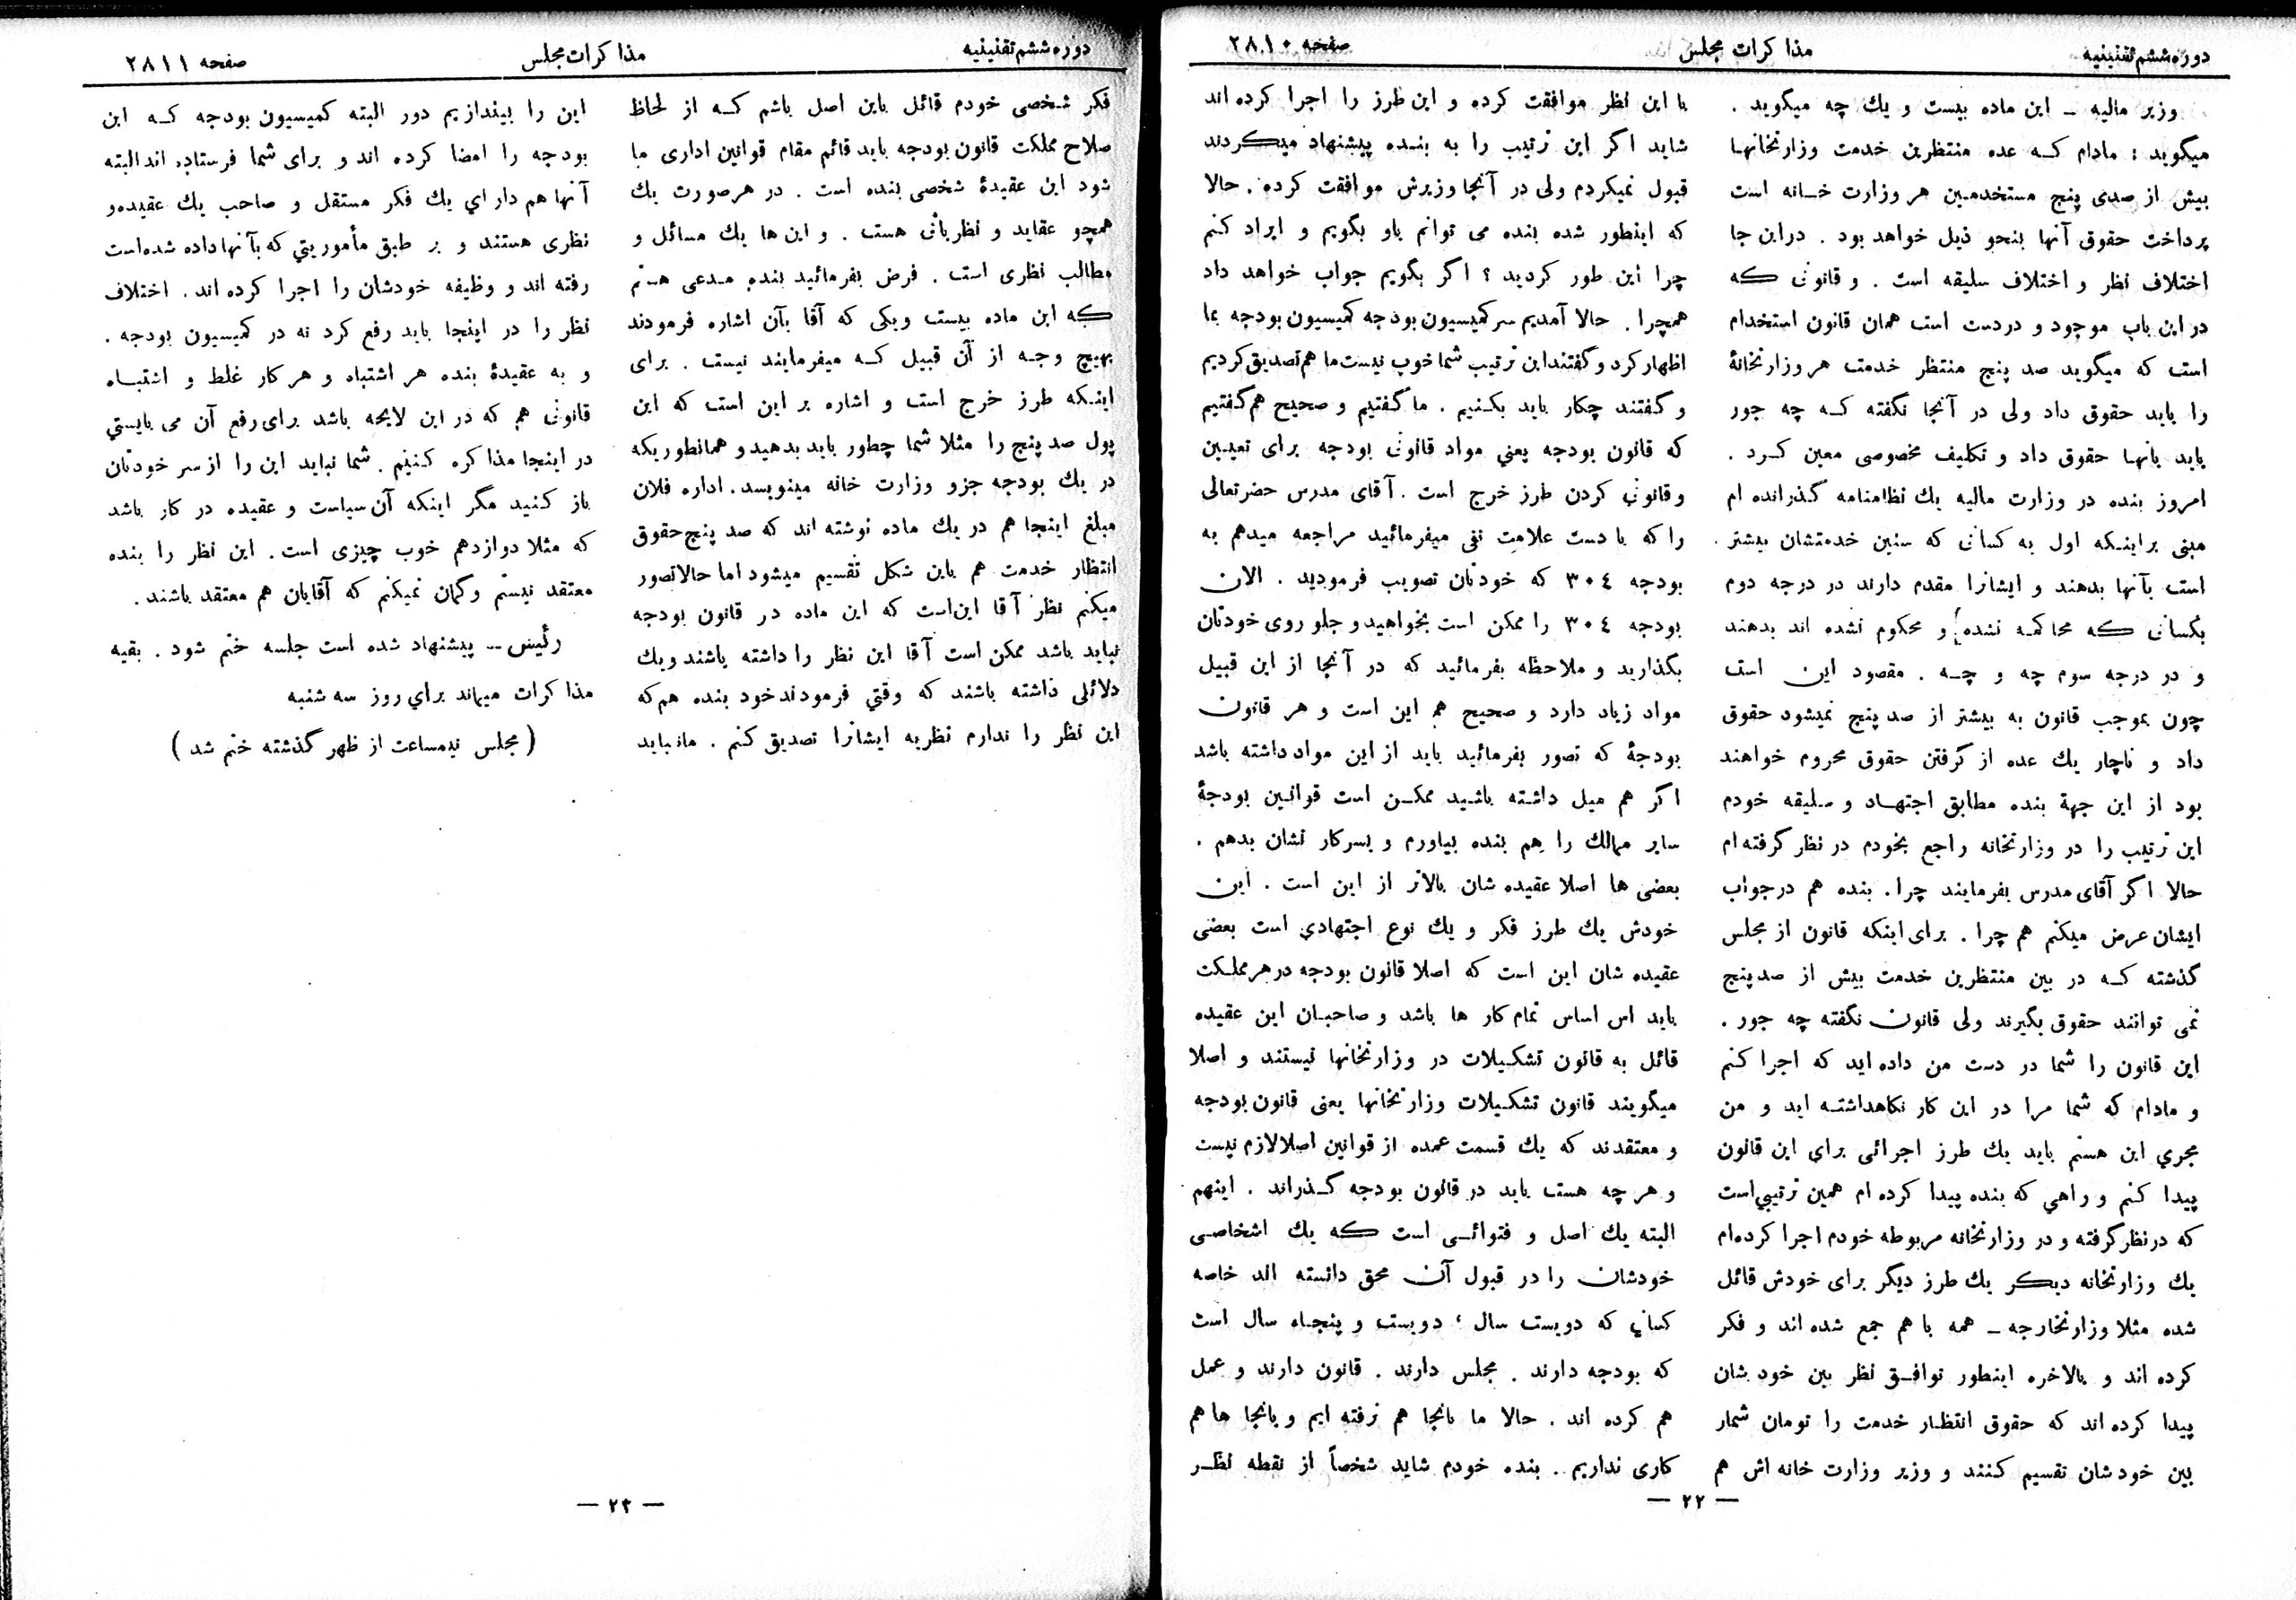 دوره ششم تقنینیه
مذاکرات مجلس
صفحه ۲۸۱۰
وزیر مالیه ـ این ماده بیست و یك چه میگوید .
میگوید : مادام که عده منتظرین خدمت وزارتخانها
بیش از صدی پنج مستخدمین هر وزارت خانه است
پرداخت حقوق آنها بنحو ذیل خواهد بود . در این جا
اختلاف نظر و اختلاف سلیقه است . و قانونی که
در این باب موجود و در دست است همان قانون استخدام
است که میگوید صد پنج منتظر خدمت هر وزارتخانهٔ
را باید حقوق داد ولی در آنجا نگفته که چه جور
باید بآنها حقوق داد و تکلیف مخصوصی معین کرد .
امروز بنده در وزارت مالیه یك نظامنامه گذرانده ام
مبنی بر اینکه اول به کسانی که سنین خدمتشان بیشتر
است بآنها بدهند و ایشانرا مقدم دارند در درجه دوم
بکسانی که محاکمه نشده و محکوم نشده اند بدهند
و در درجه سوم چه و چه . مقصود این است
چون بموجب قانون به بیشتر از صد پنج نمیشود حقوق
داد و ناچار یك عده از گرفتن حقوق محروم خواهند
بود از این جهة بنده مطابق اجتهاد و سلیقه خودم
این ترتیب را در وزارتخانه راجع بخودم در نظر گرفته ام
حالا اگر آقای مدرس بفرمایند چرا . بنده هم در جواب
ایشان عرض میکنم هم چرا . برای اینکه قانون از مجلس
گذشته که در بین منتظرین خدمت بیش از صد پنج
نمی توانند حقوق بگیرند ولی قانون نگفته چه جور .
این قانون را شما در دست من داده اید که اجرا کنم
و مادام که شما مرا در این کار نگاهداشته اید و من
مجری این هستم باید یك طرز اجرائی برای این قانون
پیدا کنم و راهی که بنده پیدا کرده ام همین ترتیبی است
که در نظر گرفته و در وزارتخانه مربوطه خودم اجرا کرده ام
یك وزارتخانه دیگر یك طرز دیگر برای خودش قائل
شده مثلا وزارتخارجه ـ همه با هم جمع شده اند و فکر
کرده اند و بالاخره اینطور توافق نظر بین خودشان
پیدا کرده اند که حقوق انتظار خدمت را تومان شمار
بین خودشان تقسیم کنند و وزیر وزارت خانه اش هم
با این نظر موافقت کرده و این طرز را اجرا کرده اند
شاید اگر این ترتیب را به بنده پیشنهاد میکردند
قبول نمیکردم ولی در آنجا وزیرش موافقت کرده . حالا
که اینطور شده بنده می توانم باو بگویم و ایراد کنم
چرا این طور کردید ؟ اگر بگویم جواب خواهد داد
همچرا . حالا آمدیم سر کمیسیون بودجه کمیسیون بودجه بما
اظهار کرد و گفتند این ترتیب شما خوب نیست ما هم تصدیق کردیم
و گفتند چکار باید بکنیم . ما گفتیم و صحیح هم گفتیم
که قانون بودجه یعنی مواد قانونی بودجه برای تعیین
و قانونی کردن طرز خرج است . آقای مدرس حضرتعالی
را که با دست علامت نفی میفرمائید مراجعه میدهم به
بودجه ۳۰٤ که خودتان تصویب فرمودید . الان
بودجه ۳۰٤ را ممکن است بخواهید و جلو روی خودتان
بگذارید و ملاحظه بفرمائید که در آنجا از این قبیل
مواد زیاد دارد و صحیح هم این است و هر قانون
بودجهٔ که تصور بفرمائید باید از این مواد داشته باشد
اگر هم میل داشته باشید ممکن است قوانین بودجهٔ
سایر ممالك را هم بنده بیاورم و بسرکار نشان بدهم .
بعضی ها اصلا عقیده شان بالاتر از این است . این
خودش یك طرز فکر و یك نوع اجتهادی است بعضی
عقیده شان این است که اصلا قانون بودجه در هر مملکت
باید اس اساس تمام کار ها باشد و صاحبان این عقیده
قائل به قانون تشکیلات در وزارتخانها نیستند و اصلا
میگویند قانون تشکیلات وزارتخانها یعنی قانون بودجه
و معتقدند که یك قسمت عمده از قوانین اصلا لازم نیست
و هر چه هست باید در قانون بودجه گذراند . اینهم
البته یك اصل و فتوائی است که یك اشخاصی
خودشان را در قبول آن محق دانسته اند خاصه
کسانی که دویست سال ، دویست و پنجاه سال است
که بودجه دارند . مجلس دارند . قانون دارند و عمل
هم کرده اند . حالا ما بانجا هم نرفته ایم و بانجا ها هم
کاری نداریم . بنده خودم شاید شخصاً از نقطه نظر
— ۲۲ —
دوره ششم تقنینیه
مذاکرات مجلس
صفحه ۲۸۱۱
فکر شخصی خودم قائل باین اصل باشم که از لحاظ
صلاح مملکت قانون بودجه باید قائم مقام قوانین اداری ما
شود این عقیدهٔ شخصی بنده است . در هر صورت یك
همچو عقاید و نظریاتی هست . و این ها یك مسائل و
مطالب نظری است . فرض بفرمائید بنده مدعی هستم
که این ماده بیست و یکی که آقا بآن اشاره فرمودند
بهیچ وجه از آن قبیل که میفرمایند نیست . برای
اینکه طرز خرج است و اشاره بر این است که این
پول صد پنج را مثلا شما چطور باید بدهید و همانطوریکه
در یك بودجه جزو وزارت خانه مینویسد . اداره فلان
مبلغ اینجا هم در یك ماده نوشته اند که صد پنج حقوق
انتظار خدمت هم باین شکل تقسیم میشود اما حالا تصور
میکنم نظر آقا این است که این ماده در قانون بودجه
نباید باشد ممکن است آقا این نظر را داشته باشند و یك
دلائلی داشته باشند که وقتی فرمودند خود بنده هم که
این نظر را ندارم نظریه ایشانرا تصدیق کنم . ما نباید
این را بیندازیم دور البته کمیسیون بودجه که این
بودجه را امضا کرده اند و برای شما فرستاده اند البته
آنها هم دارای یك فکر مستقل و صاحب یك عقیده و
نظری هستند و بر طبق مأموریتی که بآنها داده شده است
رفته اند و وظیفه خودشان را اجرا کرده اند . اختلاف
نظر را در اینجا باید رفع کرد نه در کمیسیون بودجه .
و به عقیدهٔ بنده هر اشتباه و هر کار غلط و اشتباه
قانونی هم که در این لایحه باشد برای رفع آن می بایستی
در اینجا مذاکره کنیم . شما نباید این را از سر خودتان
باز کنید مگر اینکه آن سیاست و عقیده در کار باشد
که مثلا دوازدهم خوب چیزی است . این نظر را بنده
معتقد نیستم و گمان نمیکنم که آقایان هم معتقد باشند .
رئیس ــ پیشنهاد شده است جلسه ختم شود . بقیه
مذاکرات میماند برای روز سه شنبه
( مجلس نیمساعت از ظهر گذشته ختم شد )
— ۲۳ —